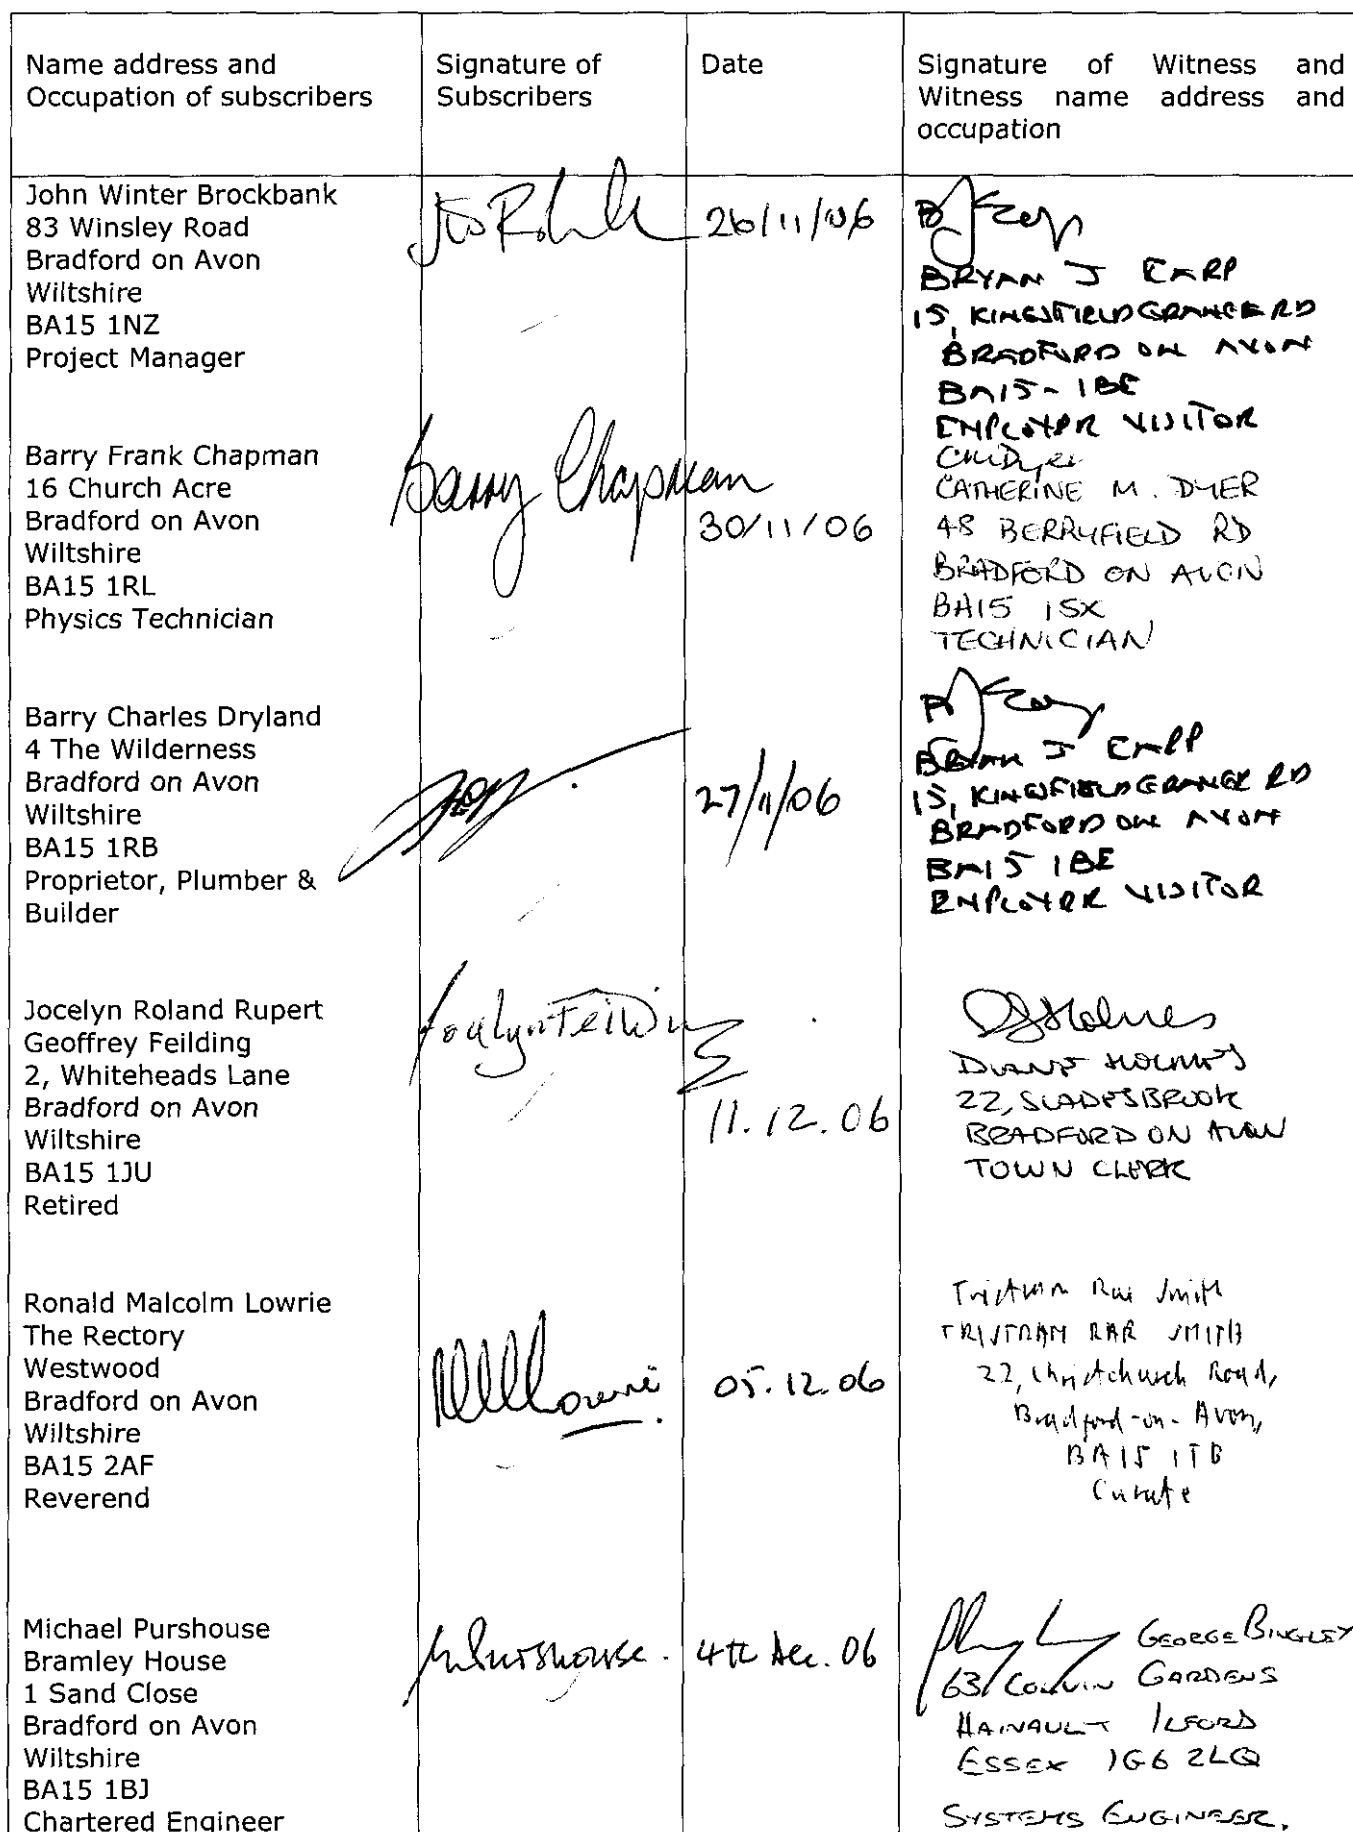 Name address and
Occupation of subscribers
Signature of
Subscribers
Date
Signature of Witness and
Witness name address and
occupation
John Winter Brockbank
83 Winsley Road
Bradford on Avon
Wiltshire
BA15 1NZ
Project Manager
26/11/06
BRYAN J EARP
15, KINGSFIELD GRANGE RD
BRADFORD ON AVON
BA15-1BE
EMPLOYER VISITOR
Barry Frank Chapman
16 Church Acre
Bradford on Avon
Wiltshire
BA15 1RL
Physics Technician
Barry Chapman
30/11/06
CMDyer
CATHERINE M. DYER
48 BERRYFIELD RD
BRADFORD ON AVON
BA15 1SX
TECHNICIAN
Barry Charles Dryland
4 The Wilderness
Bradford on Avon
Wiltshire
BA15 1RB
Proprietor, Plumber &
Builder
27/11/06
BRYAN J EARP
15, KINGSFIELD GRANGE RD
BRADFORD ON AVON
BA15 1BE
EMPLOYER VISITOR
Jocelyn Roland Rupert
Geoffrey Feilding
2, Whiteheads Lane
Bradford on Avon
Wiltshire
BA15 1JU
Retired
Jocelyn Feilding
11.12.06
DJHolmes
DIANE HOLMES
22, SLADESBROOK
BRADFORD ON AVON
TOWN CLERK
Ronald Malcolm Lowrie
The Rectory
Westwood
Bradford on Avon
Wiltshire
BA15 2AF
Reverend
RMLowrie
05.12.06
Tristram Rae Smith
TRISTRAM RAE SMITH
22, Christchurch Road,
Bradford-on-Avon,
BA15 1TB
Curate
Michael Purshouse
Bramley House
1 Sand Close
Bradford on Avon
Wiltshire
BA15 1BJ
Chartered Engineer
M Purshouse.
4th Dec. 06
GEORGE BINGLEY
63 COLVIN GARDENS
HAINAULT ILFORD
ESSEX IG6 2LQ
SYSTEMS ENGINEER.